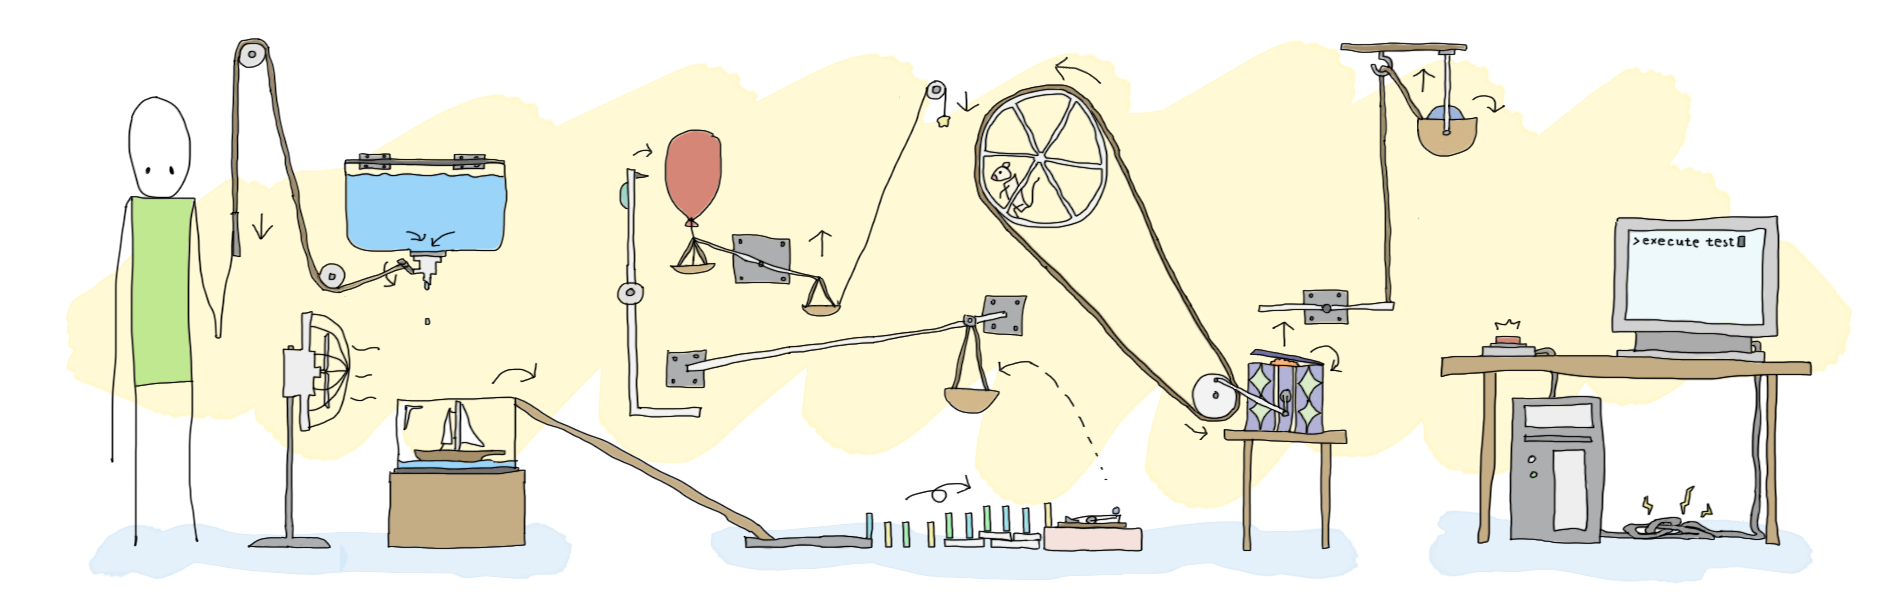 >execute test